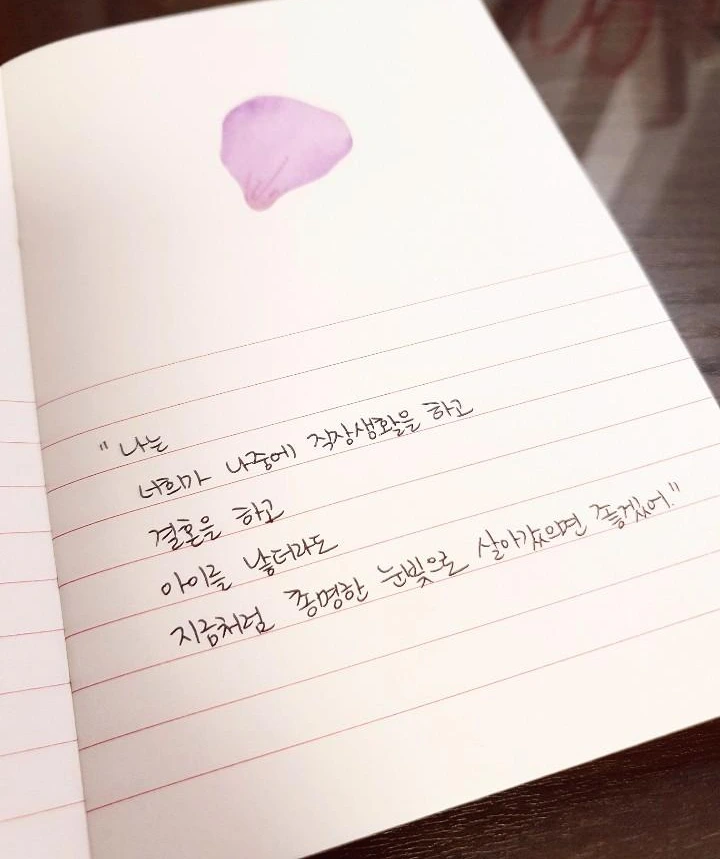 "나는
너희가 나중에 직장생활을 하고
결혼을 하고
아이를 낳더라도
지금처럼 총명한 눈빛으로 살아갔으면 좋겠어."